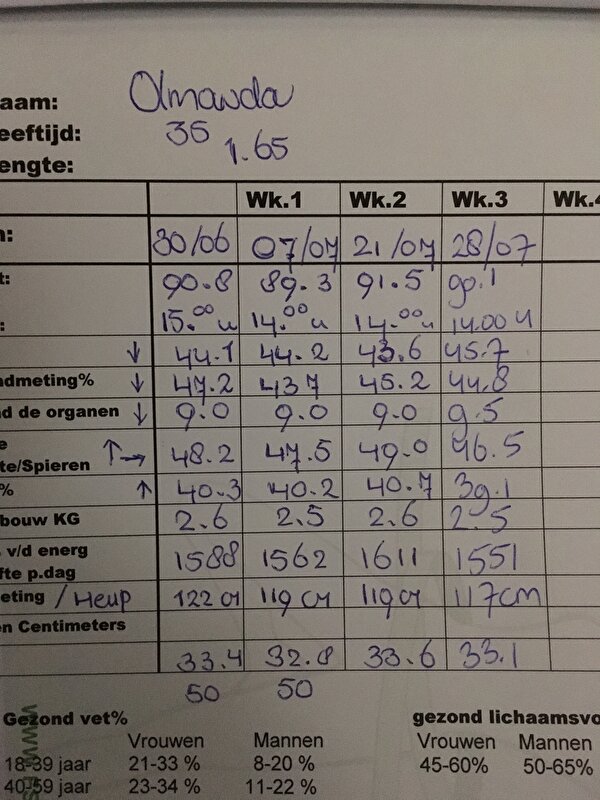 aam: Olmawda
eeftijd: 35
engte: 1.65
Wk.1 Wk.2 Wk.3 Wk.4
n: 30/06 07/07 21/07 28/07
t: 90.8 89.3 91.5 90.1
: 15.00 u 14.00 u 14.00 u 14.00 u
↓ 44.1 44.2 43.6 45.7
ndmeting% ↓ 47.2 437 45.2 44.8
nd de organen ↓ 9.0 9.0 9.0 9.5
e
te/Spieren ↑→ 48.2 47.5 49.0 46.5
% ↑ 40.3 40.2 40.7 39.1
bouw KG 2.6 2.5 2.6 2.5
v/d energ
fte p.dag 1588 1562 1611 1551
eting / Heup 122 cm 119 cm 119 cm 117cm
en Centimeters
33.4 32.8 33.6 33.1
50 50
Gezond vet% gezond lichaamsvo
Vrouwen Mannen Vrouwen Mannen
18-39 jaar 21-33 % 8-20 % 45-60% 50-65%
40-59 jaar 23-34 % 11-22 %